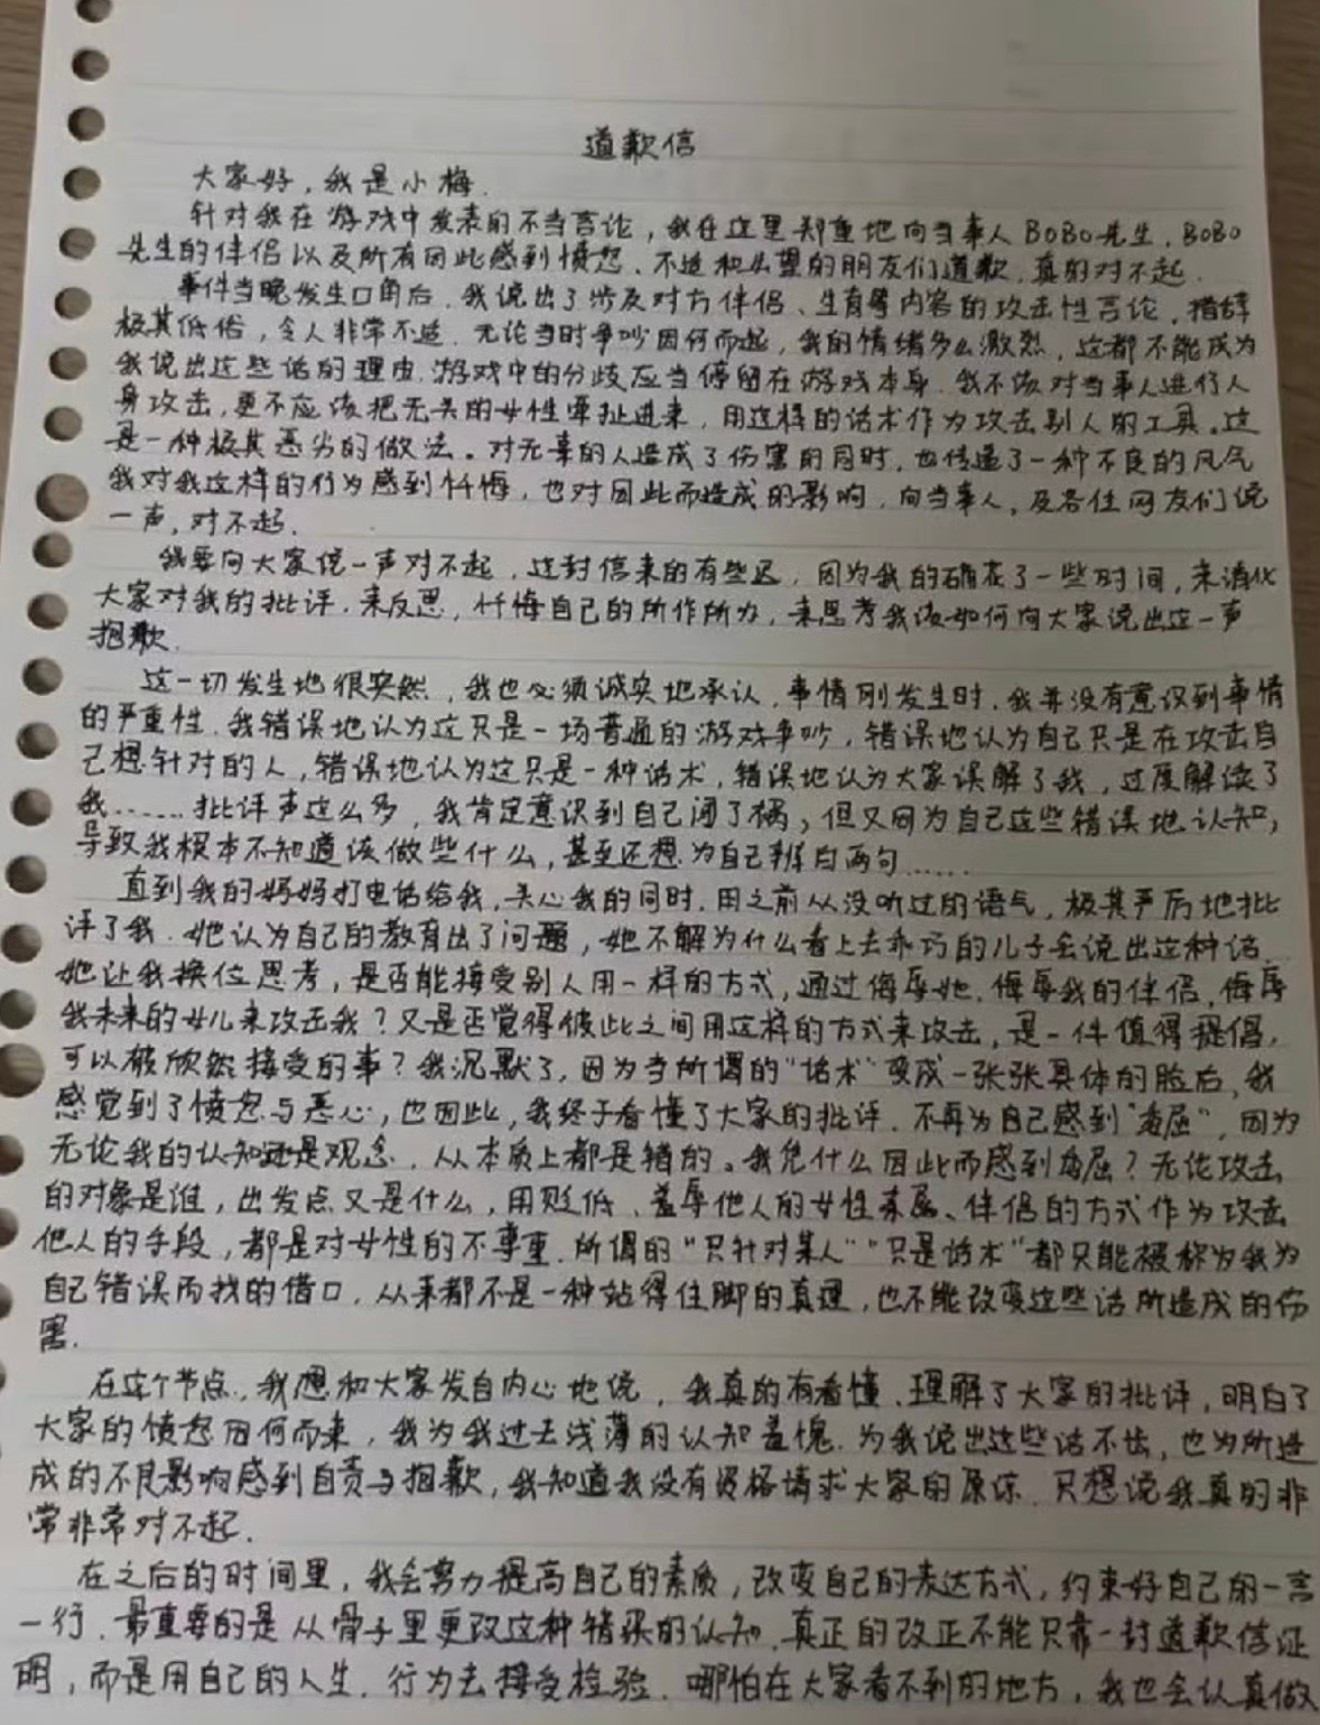 道歉信
大家好，我是小梅.
针对我在游戏中发表的不当言论，我在这里郑重地向当事人BOBO先生、BOBO
先生的伴侣以及所有因此感到愤怒、不适和失望的朋友们道歉.真的对不起.
事件当晚发生口角后.我说出了涉及对方伴侣、生育等内容的攻击性言论，措辞
极其低俗，令人非常不适.无论当时争吵因何而起，我的情绪多么激烈，这都不能成为
我说出这些话的理由.游戏中的分歧应当停留在游戏本身.我不该对当事人进行人
身攻击，更不应该把无关的女性牵扯进来，用这样的话术作为攻击别人的工具。这
是一种极其恶劣的做法。对无辜的人造成了伤害的同时，也传递了一种不良的风气
我对我这样的行为感到忏悔，也对因此而造成的影响，向当事人，及各位网友们说
一声，对不起.
我要向大家说一声对不起，这封信来的有些迟，因为我的确花了一些时间，来消化
大家对我的批评.来反思，忏悔自己的所作所为，来思考我该如何向大家说出这一声
抱歉.
这一切发生地很突然，我也必须诚实地承认，事情刚发生时，我并没有意识到事情
的严重性.我错误地认为这只是一场普通的游戏争吵，错误地认为自己只是在攻击自
己想针对的人，错误地认为这只是一种话术，错误地认为大家误解了我，过度解读了
我......批评声这么多，我肯定意识到自己闯了祸，但又因为自己这些错误地认知，
导致我根本不知道该做些什么，甚至还想为自己辩白两句......
直到我的妈妈打电话给我，关心我的同时.用之前从没听过的语气，极其严厉地批
评了我.她认为自己的教育出了问题，她不解为什么看上去乖巧的儿子会说出这种话.
她让我换位思考，是否能接受别人用一样的方式，通过侮辱她.侮辱我的伴侣，侮辱
我未来的女儿来攻击我？又是否觉得彼此之间用这样的方式来攻击，是一件值得提倡，
可以被欣然接受的事？我沉默了，因为当所谓的“话术”变成一张张具体的脸后，我
感觉到了愤怒与恶心，也因此，我终于看懂了大家的批评.不再为自己感到“委屈”，因为
无论我的认知还是观念.从本质上都是错的。我凭什么因此而感到委屈？无论攻击
的对象是谁，出发点又是什么，用贬低、羞辱他人的女性亲属、伴侣的方式作为攻击
他人的手段，都是对女性的不尊重.所谓的“只针对某人”“只是话术”都只能被称为我为
自己错误而找的借口，从来都不是一种站得住脚的真理，也不能改变这些话所造成的伤
害.
在这个节点，我想和大家发自内心地说，我真的有看懂、理解了大家的批评，明白了
大家的愤怒因何而来，我为我过去浅薄的认知羞愧.为我说出这些话不齿，也为所造
成的不良影响感到自责与抱歉，我知道我没有资格请求大家的原谅.只想说我真的非
常非常对不起.
在之后的时间里，我会努力提高自己的素质，改变自己的表达方式，约束好自己的一言
一行.最重要的是从骨子里更改这种错误的认知.真正的改正不能只靠一封道歉信证
明，而是用自己的人生.行为去接受检验.哪怕在大家看不到的地方，我也会认真做